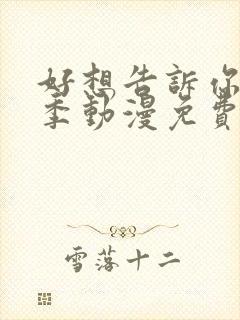 好想告訴你
季動漫免費
雪落十二